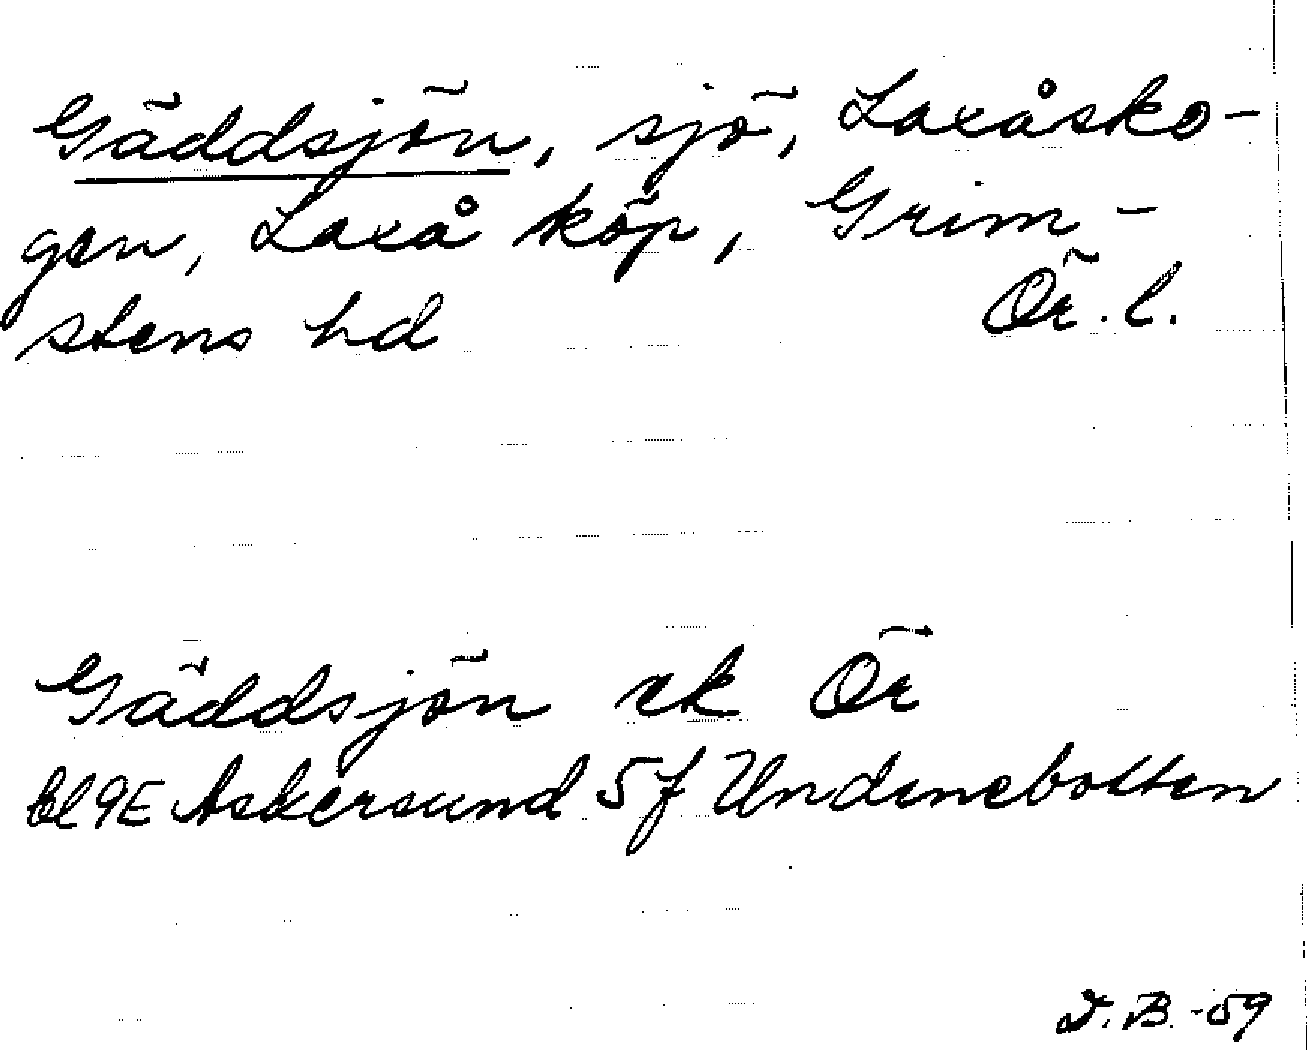 Gäddsjön, sjö, Laxåsko-
gen, Laxå köp, Grim-
stens hd Ör. l.
Gäddsjön ek Ör
bl 9E Askersund 5f Undenebotten
D.B. -59